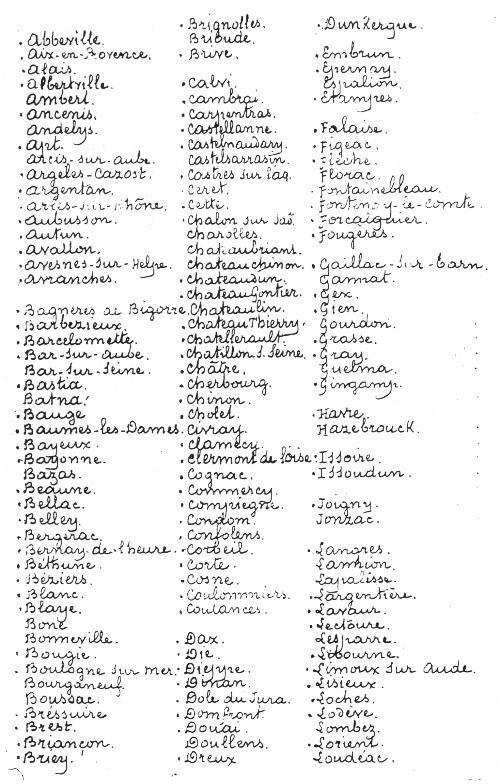 . Abbeville.
. Aix-en-Provence.
. Alais.
. Albertville.
Ambert.
. Ancenis.
Andelys.
. Apt.
Arcis-sur-aube.
. Argeles-Gazost.
. Argentan.
. Arles-sur-Rhône.
. Aubusson.
. Autun.
. Avallon.
. Avesnes-sur-Helpe.
. Avranches.
. Bagneres de Bigorre.
. Barbezieux.
. Barcelonnette.
. Bar-sur-Aube.
Bar-sur-Seine.
. Bastia.
Batna.
. Bauge
. Baumes-les-Dames.
. Bayeux.
. Bayonne.
Bazas.
. Beaune.
. Bellac.
. Belley.
. Bergerac.
. Bernay-de-l'heure.
. Bethune.
. Béziers.
. Blanc.
. Blaye.
Bone
Bonneville.
. Bougie.
. Boulogne sur mer.
Bourganeuf.
Boussac.
. Bressuire
. Brest.
. Briançon.
. Briey.
. Brignolles.
Brioude.
. Brive.
. Calvi.
. Cambrai.
. Carpentras.
. Castellanne.
. Castelnaudary.
Castelsarrasin.
. Castres sur l'aq.
. Ceret.
. Cette.
. Chalon sur Saô.
. Charolles.
Chateaubriant.
. Chateauchinon.
. Chateaudun.
. ChateauGontier.
. Chateaulin.
. ChateauThierry.
. Chatellerault.
. Chatillon s. Seine.
. Châtre.
. Cherbourg.
. Chinon.
. Cholet.
. Civray.
. Clamecy.
. Clermont de l'oise.
. Cognac.
. Commercy.
. Compiegne.
. Condom.
. Confolens.
. Corbeil.
. Corte.
. Cosne.
. Coulommiers.
. Coutances.
. Dax.
. Die.
. Dieppe.
. Dinan.
. Dole du Jura.
. Domfront.
. Douai.
. Doullens.
. Dreux
. Dunkergue.
. Embrun.
. Epernay.
. Espalion.
. Etampes.
. Falaise.
. Figeac.
. Fleche.
Florac.
. Fontainebleau.
. Fontenoy-le-comte.
. Forcalquier.
. Fougères.
. Gaillac-sur-Tarn.
. Gannat.
. Gex.
. Gien.
. Gourdon.
. Grasse.
. Gray.
Guelma.
. Gingamp.
. Havre.
Hazebrouck.
. Issoire.
. Issoudun.
. Joigny.
Jonzac.
. Langres.
. Lannion.
Lapalisse.
. Largentière.
. Lavaur.
. Lectoure.
Lesparre.
. Libourne.
. Limoux sur Aude.
. Lisieux.
. Loches.
. Lodève.
Lombez.
. Lorient.
Loudéac.